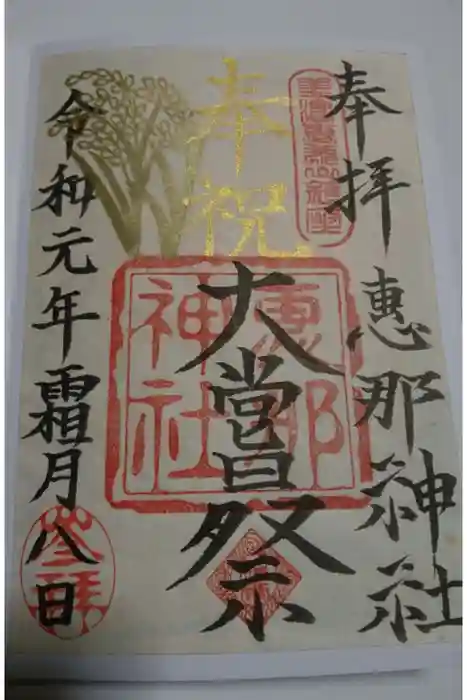 奉拝 惠那神社
奉祝
大嘗祭
惠那
神社
令和元年霜月八日
参拝